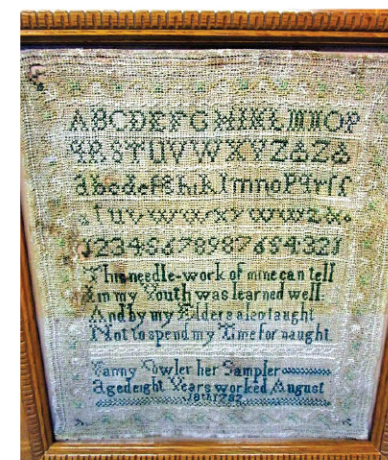 A B C D E F G H I K L M N O P
Q R S T U V W X Y Z & Z &
a b c d e f g h i k l m n o p q r s ſ
t u v w x y
1 2 3 4 5 6 7 8 9 8 7 6 5 4 3 2 1
This needle-work of mine can tell
in my Youth was learned well
And by my Elders also taught
Not to spend my Time for naught
Fanny Fowler her Sampler
Aged eight Years worked August
18th 1782